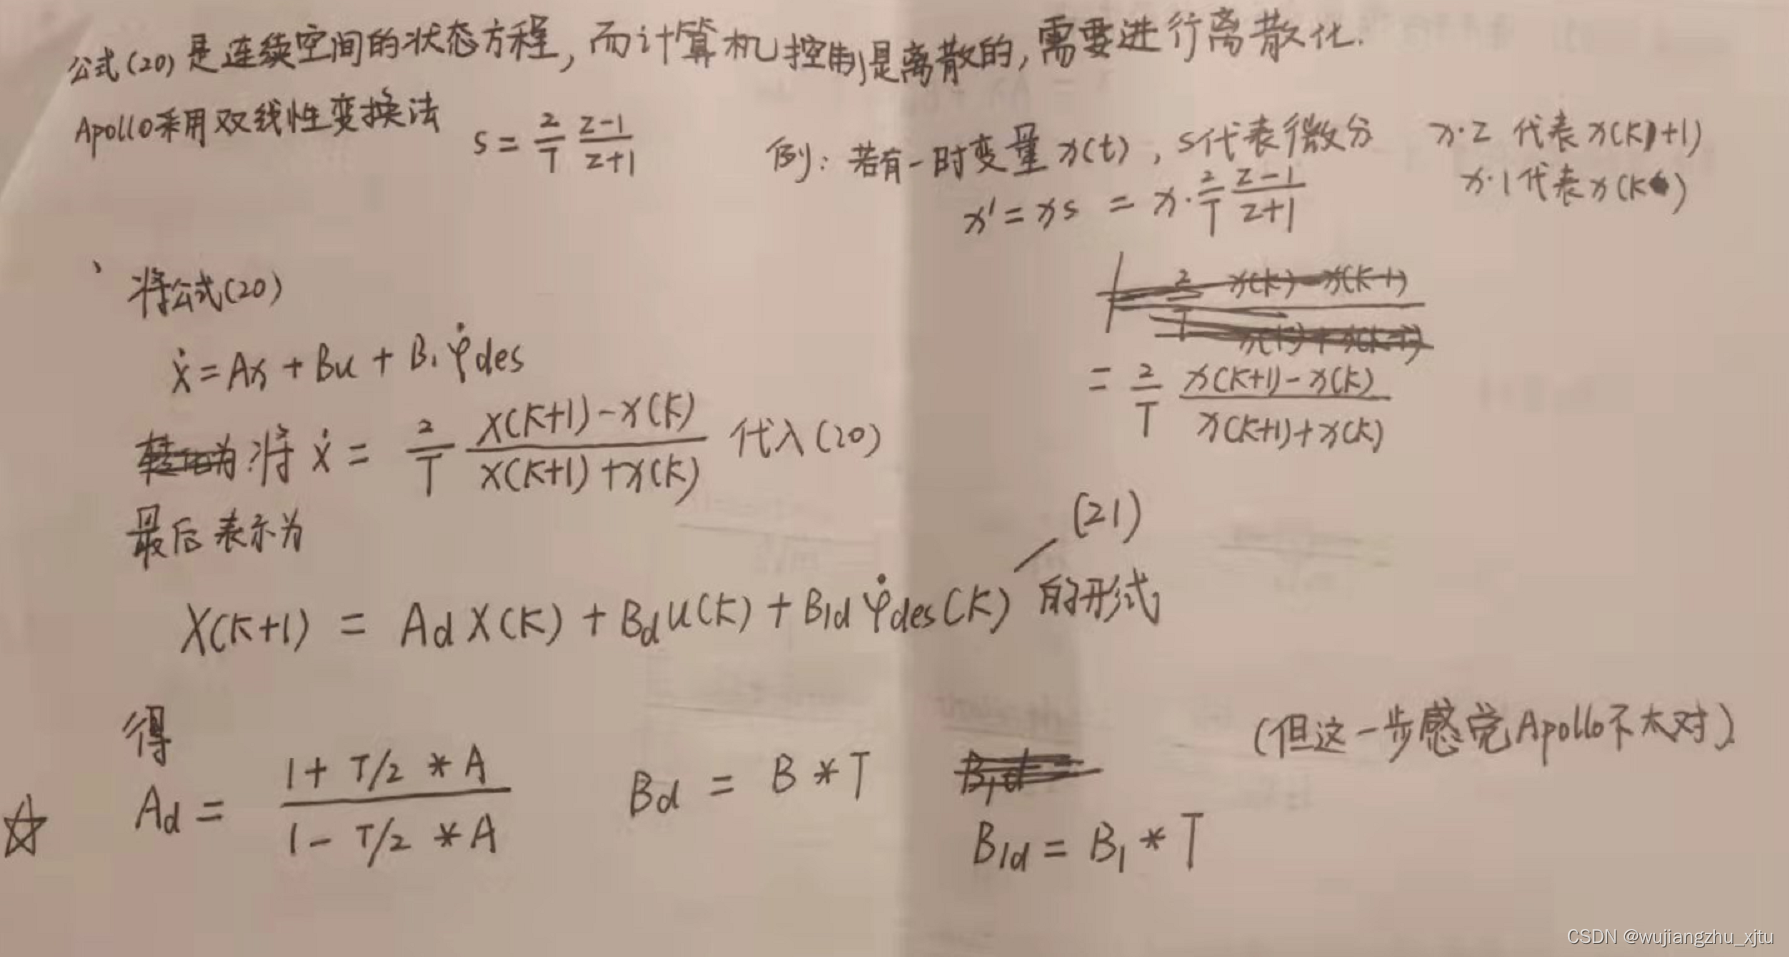 公式(20)是连续空间的状态方程,而计算机控制是离散的,需要进行离散化.
Apollo采用双线性变换法 s = 2/T z-1/z+1
例:若有一时变量x(t),s代表微分 x·z 代表x(k+1)
x·1代表x(k)
x' = xs = x· 2/T z-1/z+1
= 2/T x(k+1)-x(k)/x(k+1)+x(k)
将公式(20)
ẋ = Ax + Bu + B₁ φ̇des
将 ẋ = 2/T x(k+1)-x(k)/x(k+1)+x(k) 代入(20)
最后表示为
(21)
X(k+1) = Ad X(k) + Bd u(k) + B1d φ̇des(k) 的形式
得
(但这一步感觉Apollo不太对)
☆ Ad = 1+ T/2 * A / 1- T/2 * A Bd = B * T
B1d = B₁ * T
CSDN @wujiangzhu_xjtu